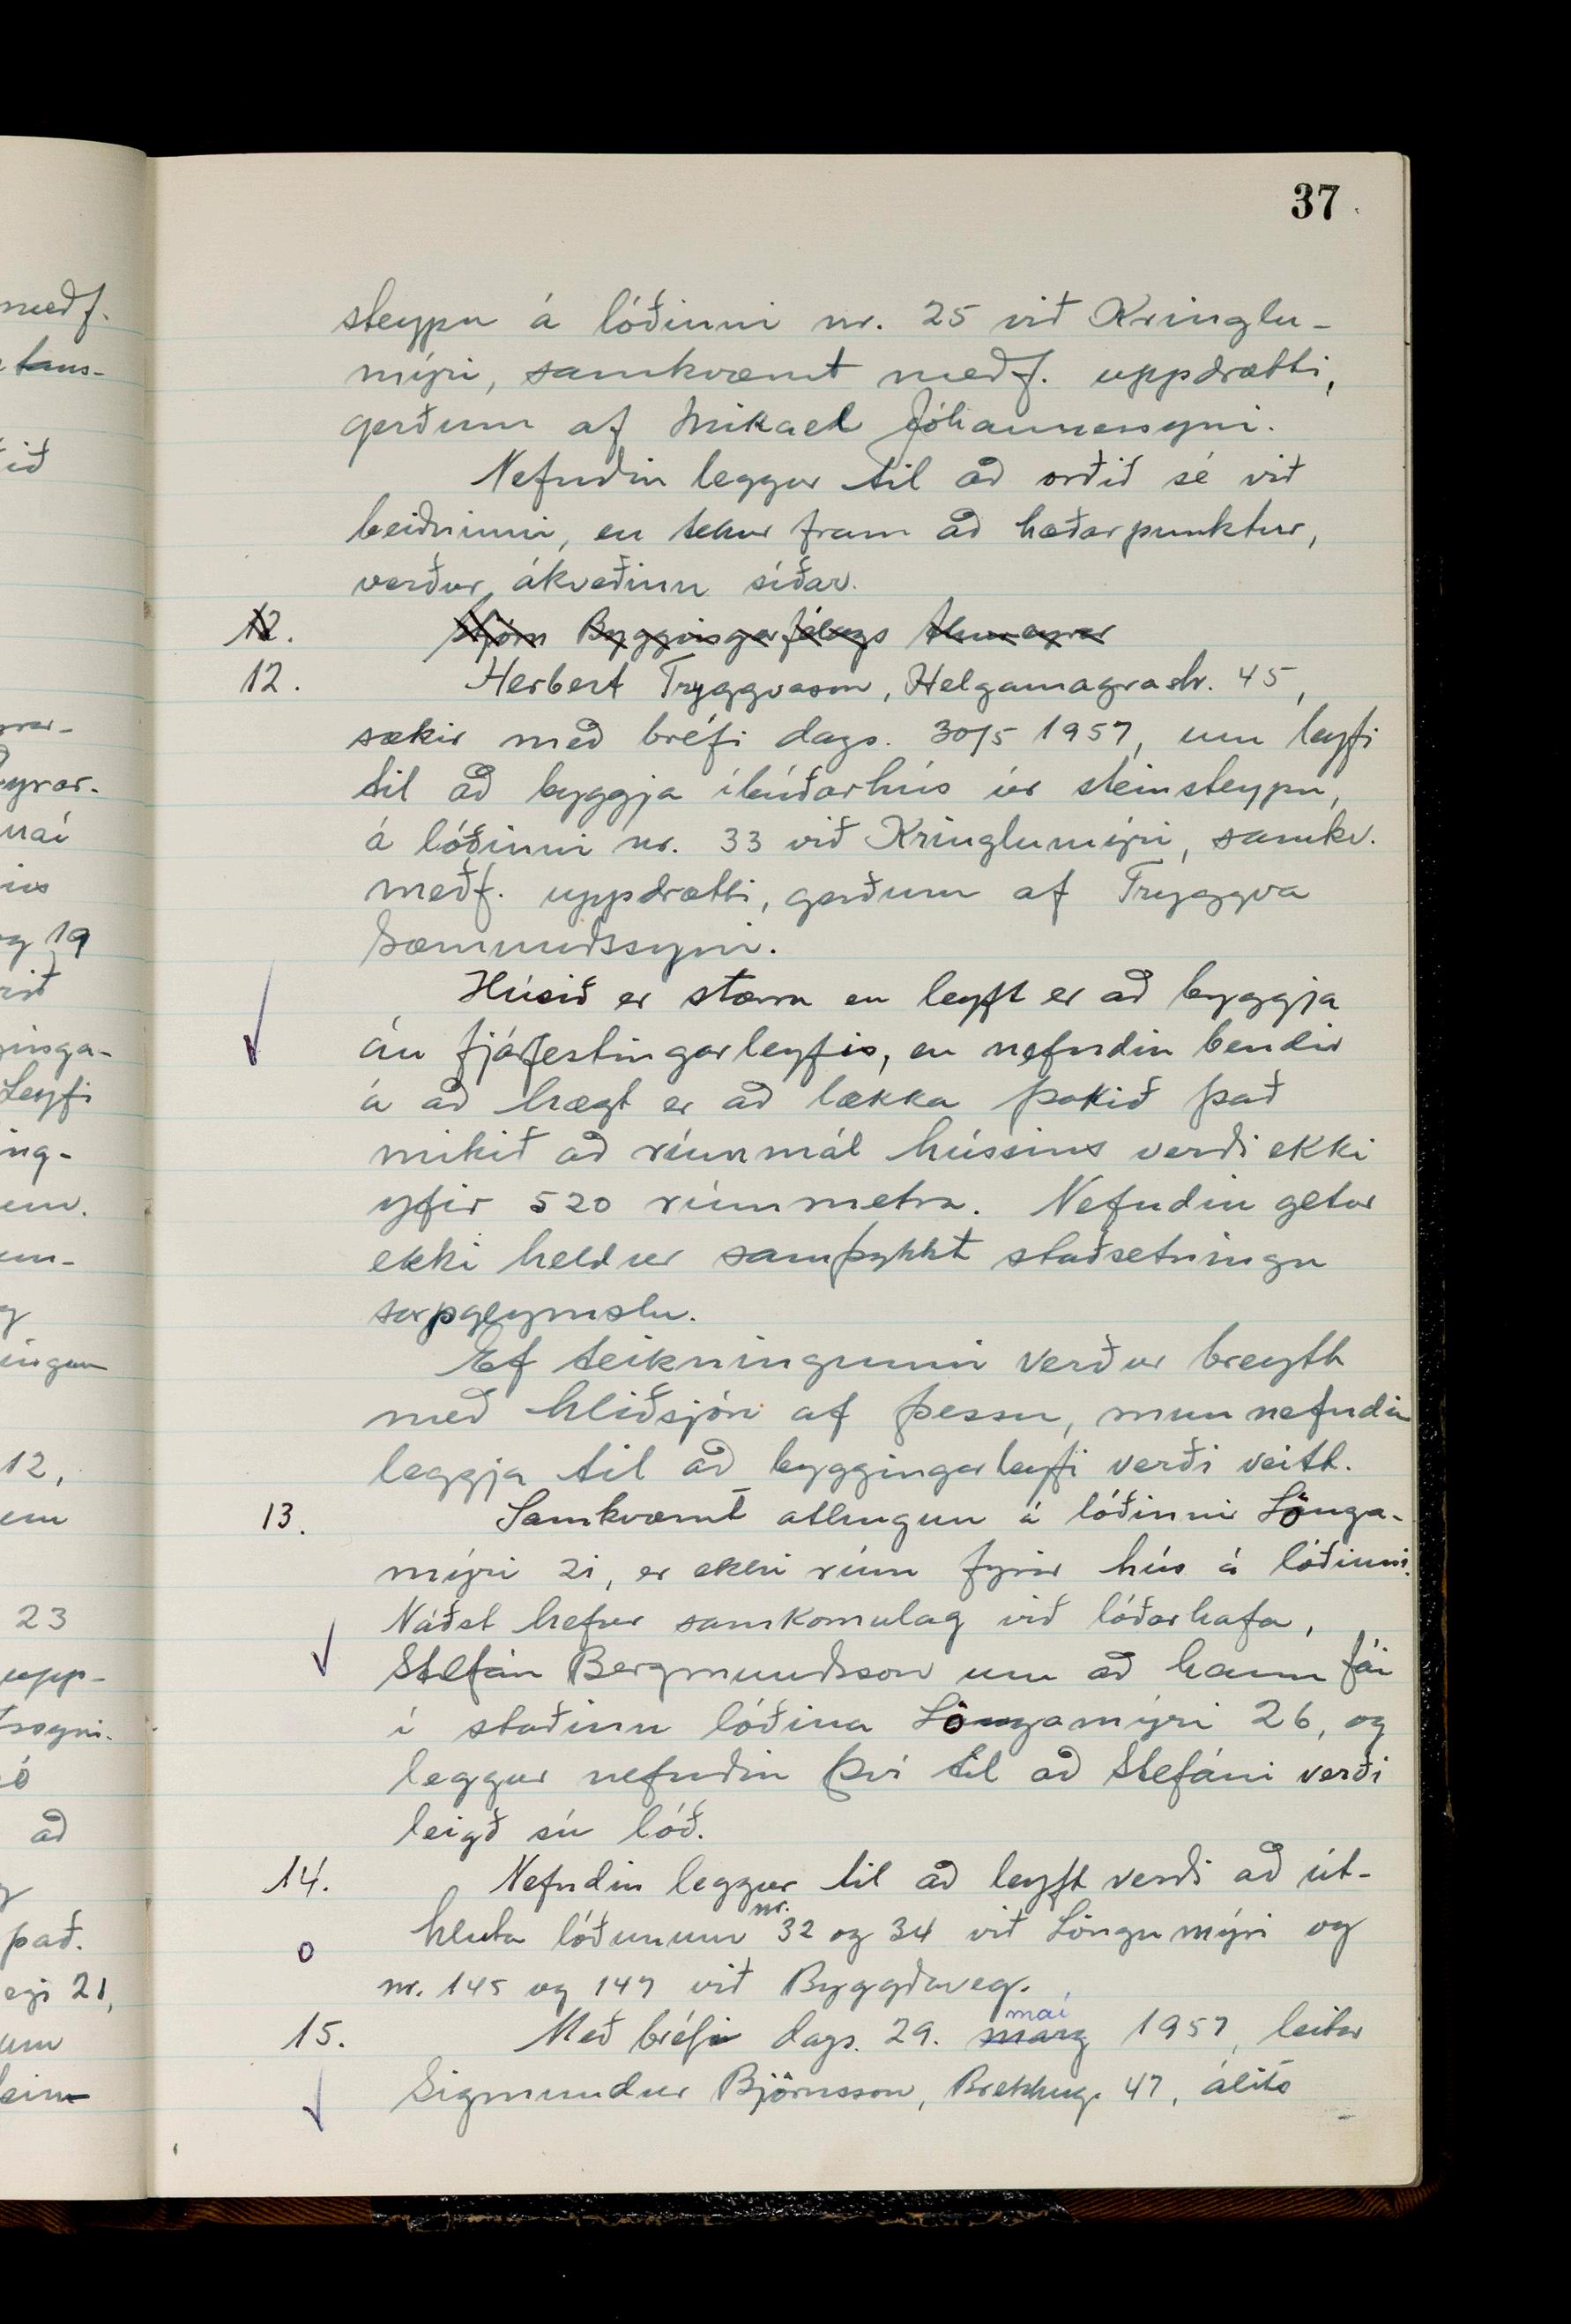 37
steypu á lóðinni nr. 25 við Kringlu-
mýri, samkvæmt meðf. uppdrætti,
gerðum af Mikael Jóhannessyni.
Nefndin leggur til að orðið sé við
beiðninni, en tekur fram að hæðarpunktur,
verður ákveðinn síðar.
12. Stjórn Byggingarfélags Akureyrar
12. Herbert Tryggvason, Helgamagrastr. 45,
sækir með bréfi dags. 30/5 1957, um leyfi
til að byggja íbúðarhús úr steinsteypu,
á lóðinni nr. 33 við Kringlumýri, samkv.
meðf. uppdrætti, gerðum af Tryggva
Sæmundssyni.
Húsið er stærra en leyft er að byggja
án fjárfestingarleyfis, en nefndin bendir
á að hægt er að lækka þakið það
mikið að rúmmál hússins verði ekki
yfir 520 rúmmetra. Nefndin getur
ekki heldur samþykkt staðsetningu
sorpgeymslu.
Ef teikningunni verður breytt
með hliðsjón af þessu, mun nefndin
leggja til að byggingarleyfi verði veitt.
13. Samkvæmt athugun á lóðinni Langa-
mýri 21, er ekki rúm fyrir hús á lóðinni.
Náðst hefur samkomulag við lóðarhafa,
Stefán Bergmundsson um að hann fái
í staðinn lóðina Langamýri 26, og
leggur nefndin því til að Stefáni verði
leigð sú lóð.
14. Nefndin leggur til að leyft verði að út-
hluta lóðunum nr. 32 og 34 við Löngumýri og
nr. 145 og 147 við Byggðaveg.
15. Með bréfi dags. 29. marz maí 1957, leitar
Sigmundur Björnsson, Brekkug. 47, álits